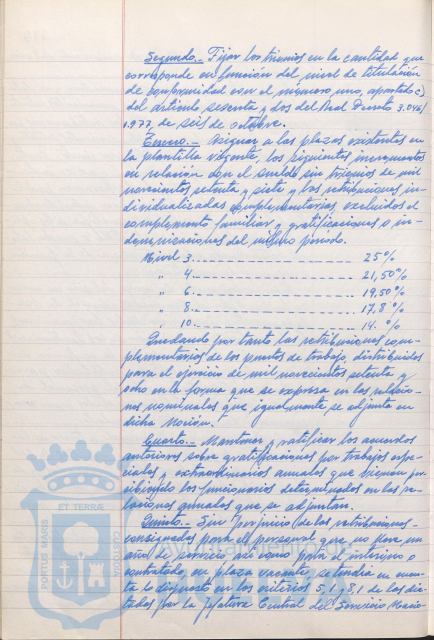 Segundo.- Fijar los trienios en la cantidad que
corresponde en función del nivel de titulación
de conformidad con el número uno, apartado c)
del artículo sesenta y dos del Real Decreto 3.046/
1.977 de seis de octubre.
Tercero.- Asignar a las plazas existentes en
la plantilla vigente, los siguientes incrementos
en relación con el sueldo sin trienios de mil
novecientos setenta y siete y las retribuciones in-
dividualizadas complementarias excluidos el
complemento familiar y gratificaciones o in-
demnizaciones del mismo periodo.
Nivel 3 ------------------------ 25%
" 4 ------------------------ 21,50%
" 6 ------------------------ 19,50%
" 8 ------------------------ 17,8%
" 10 ------------------------ 14. %
Quedando por tanto las retribuciones com-
plementarias de los puestos de trabajo, distribuidos
para el ejercicio de mil novecientos setenta y
ocho en la forma que se expresa en las relacio-
nes nominales que igualmente se adjunta en
dicha moción.
Cuarto.- Mantener y ratificar los acuerdos
anteriores sobre gratificaciones por trabajos espe-
ciales y extraordinarios anuales que vienen per-
cibiendo los funcionarios determinados en las re-
laciones anuales que se adjuntan.
Quinto.- Sin perjuicio de las retribuciones
consignadas para el personal que no lleve un
año de servicio así como para el interino o
contratado en plaza vacante, se tendrá en cuen-
ta lo dispuesto en los criterios 5,1 y 8,1 de los dic-
tados por la Jefatura Central del Servicio Nacio-
PORTUS MARIS
ET TERRAE
CUSTODIA